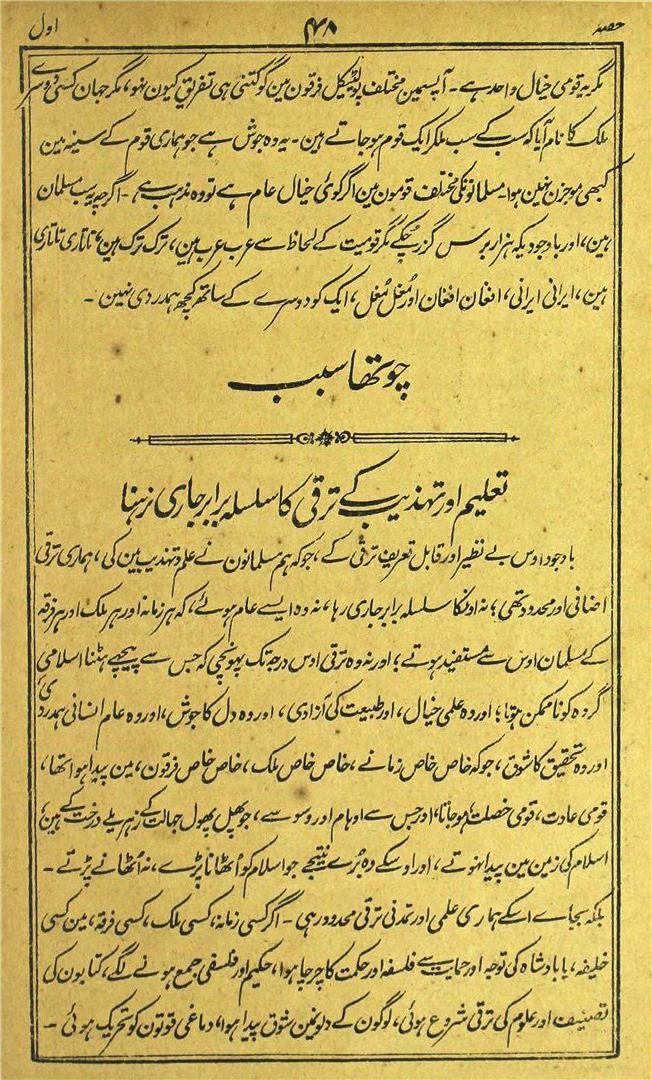 حصہ ۴۸ اول
مگر یہ قومی خیال واحد ہے۔ آپسمین مختلف پولٹیکل فرقون مین گو کتنی ہی تفریق کیون نہو، مگر جہان کسی دوسرے
ملک کا نام آیا کہ سب کے سب ملکر ایک قوم ہو جاتے ہین۔ یہ وہ جوش ہے جو ہماری قوم کے سینہ مین
کبھی موجزن نہین ہوا۔ مسلمانونکی مختلف قومون مین اگر کوئی خیال عام ہے تو وہ مذہب ہے۔ اگرچہ یہ سب مسلمان
ہین، اور باوجودیکہ ہزار برس گزر چکے مگر قومیت کے لحاظ سے عرب عرب ہین، ترک ترک ہین، تاتاری تاتاری
ہین، ایرانی ایرانی، افغان افغان اور مُغل مُغل، ایک کو دوسرے کے ساتھ کچھ ہمدردی نہین۔
چوتھا سبب
تعلیم اور تہذیب کے ترقی کا سلسلہ برابر جاری نرہنا
باوجود اوس بے نظیر اور قابل تعریف ترقی کے، جو کہ ہم مسلمانون نے علم و تہذیب مین کی، ہماری ترقی
اضافی اور محدود تھی؛ نہ اونکا سلسلہ برابر جاری رہا، نہ وہ ایسے عام ہوئے، کہ ہر زمانہ اور ہر ملک اور ہر فرقہ
کے مسلمان اوس سے مستفید ہوتے؛ اور نہ وہ ترقی اوس درجہ تک پہونچی کہ جس سے پیچھے ہٹنا اسلامی
گروہ کو ناممکن ہوتا؛ اور وہ علمی خیال، اور طبیعت کی آزادی، اور وہ دل کا جوش، اور وہ عام انسانی ہمدردی،
اور وہ تحقیق کا شوق، جو کہ خاص خاص زمانے، خاص خاص ملک، خاص خاص فرقون، مین پیدا ہوا تھا،
قومی عادت، قومی خصلت ہو جاتا، اور جس سے اوہام اور وسوسے، جو پھل پھول جہالت کے زہریلے درخت کے ہین،
اسلام کی زمین مین پیدا نہوتے، اور اوسکے وہ بُرے نتیجے جو اسلام کو اُٹھانا پڑے، نہ اُٹھانے پڑتے۔
بلکہ بجاے اسکے ہماری علمی اور تمدنی ترقی محدود رہی۔ اگر کسی زمانہ، کسی ملک، کسی فرقہ، مین کسی
خلیفہ، یا بادشاہ کی توجہ اور حمایت سے فلسفہ اور حکمت کا چرچا ہوا، حکیم اور فلسفی جمع ہونے لگے، کتابون کی
تصنیف اور علوم کی ترقی شروع ہوئی، لوگون کے دلونمین شوق پیدا ہوا، دماغی قوتون کو تحریک ہوئی۔